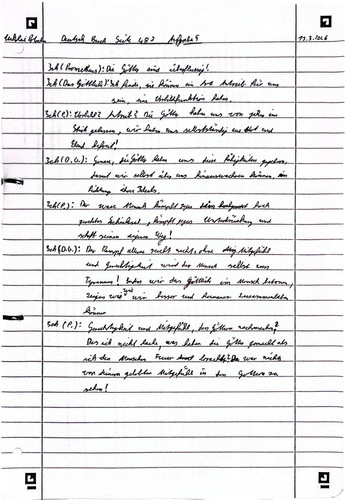 Deutsch Buch Seite 487 Aufgabe 5 11.3.2026
Ich (Prometheus): Die Götter sind überflüssig!
Ich (Das Göttliche): Ich finde, sie können ein Antrieb für uns
sein, eine Vorbildfunktion haben.
Ich (P.): Vorbild? Antrieb? Die Götter haben uns von jeher im
Stich gelassen, wir haben uns selbstständig aus Not und
Elend befreit!
Ich (D.G.): Genau, die Götter haben uns diese Fähigkeiten gegeben,
damit wir selbst über uns hinauswachsen können, in
Richtung ihres Ideals.
Ich (P.): Der wahre Mensch kämpft gegen
Schicksal, kämpft gegen Unterdrückung und
schafft seinen eigenen Weg!
Ich (D.G.): Der Kampf allein reicht nicht, ohne Mitgefühl
und Gerechtigkeit wird der Mensch selbst zum
Tyrannen! Indem wir das Göttliche im Mensch betonen,
zeigen wir besser und humaner zusammenleben
können
Ich (P.): Gerechtigkeit und Mitgefühl, den Göttern nachmachen?
Das ich nicht lache, was haben die Götter gemacht als
ich den Menschen Feuer brachte? Da war nichts
von diesem gelebten Mitgefühl in den Göttern zu
sehen!